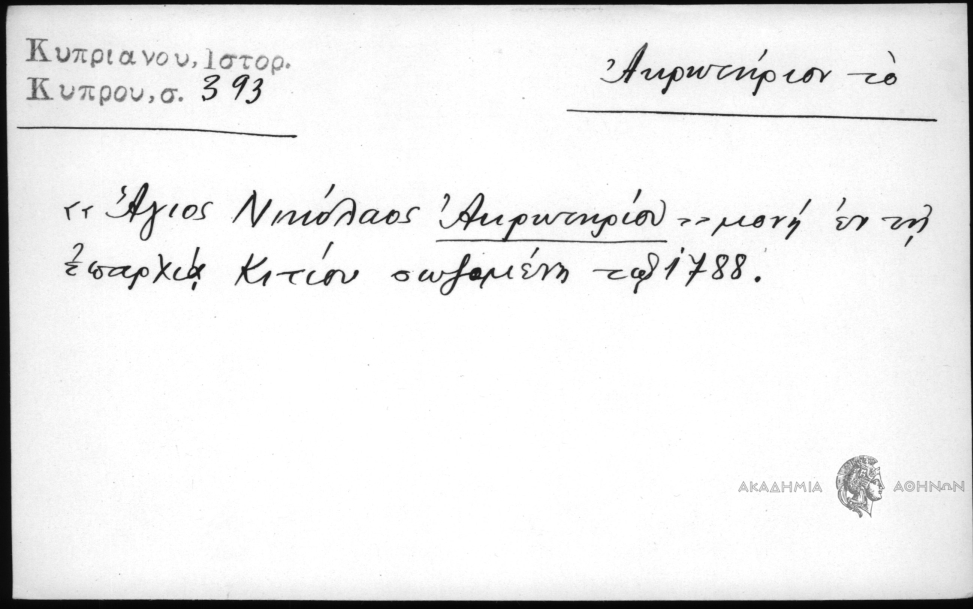 Κυπριανου, Ιστορ.
Κυπρου, σ. 393
Ἀκρωτήριον τὸ
«Ἅγιος Νικόλαος Ἀκρωτηρίου» μονὴ ἐν τῇ
ἐπαρχίᾳ Κιτίου σωζομένη τῷ 1788.
ΑΚΑΔΗΜΙΑ ΑΘΗΝΩΝ